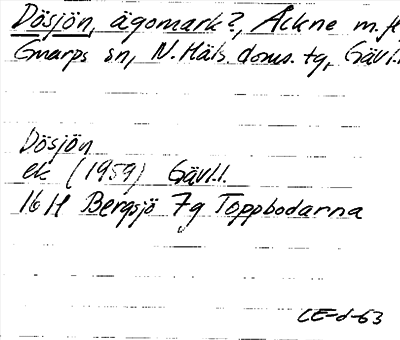 Dösjön, ägomark?, Åckne m. fl
Gnarps sn, N. Häls. doms. tg, Gävl.l.
Dösjön
ek (1959) Gävl.l.
16H Bergsjö 7g Toppbodarna
CE-d-63